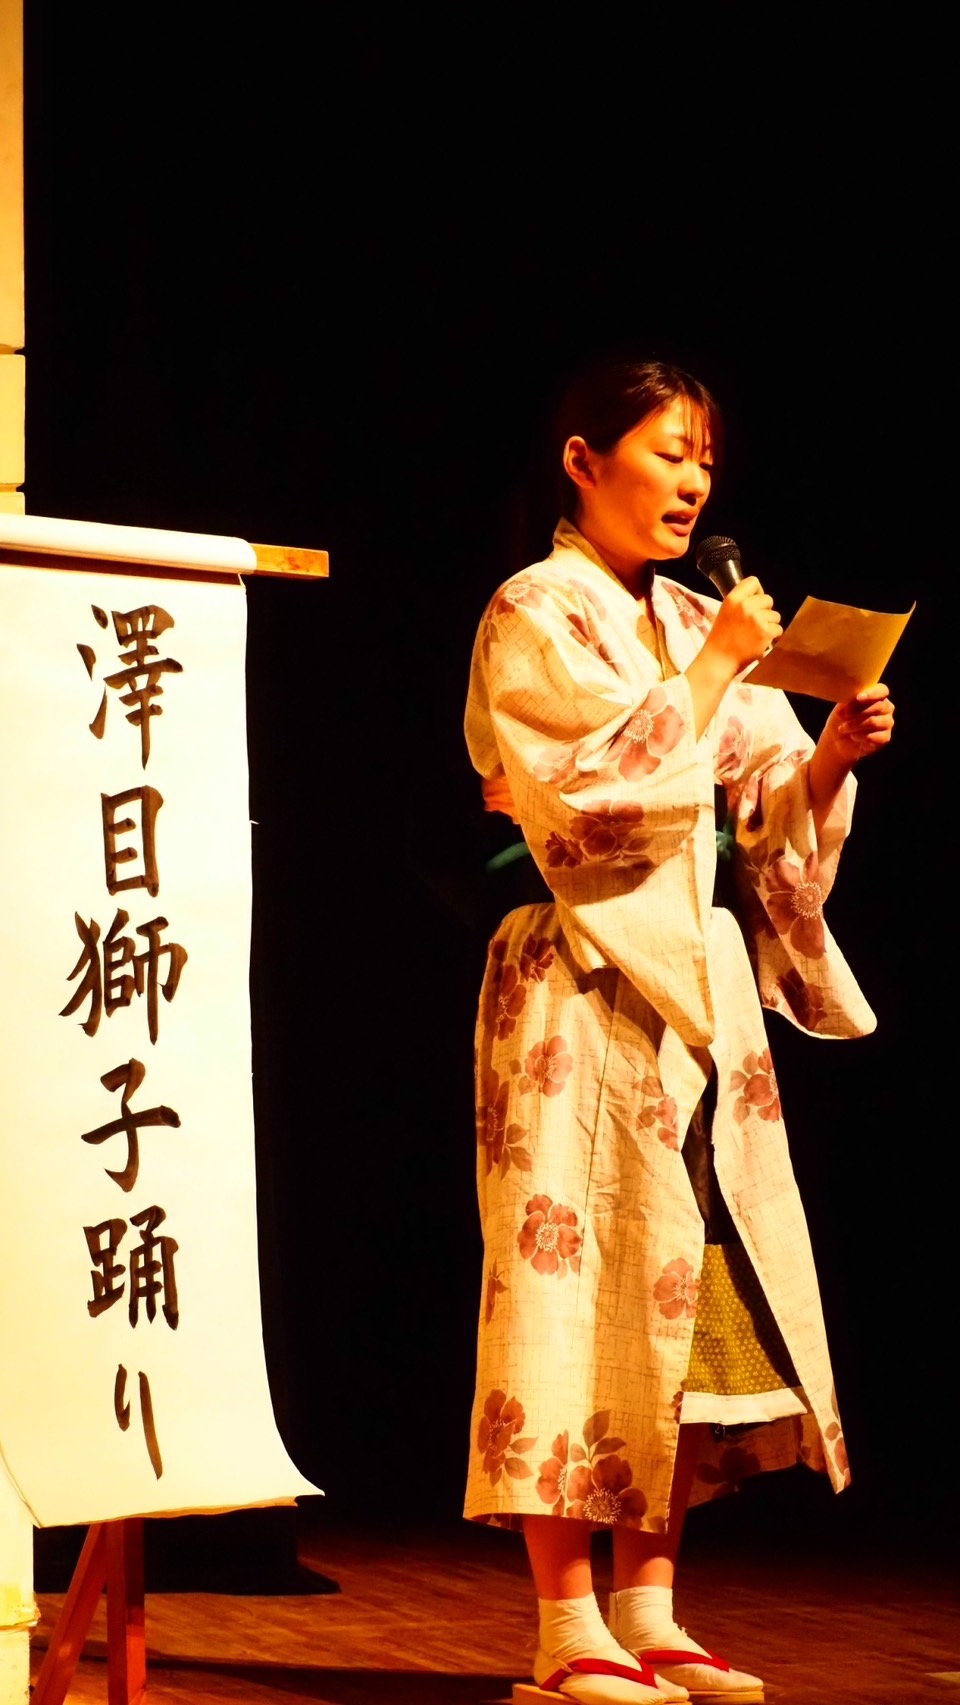 澤目獅子踊り